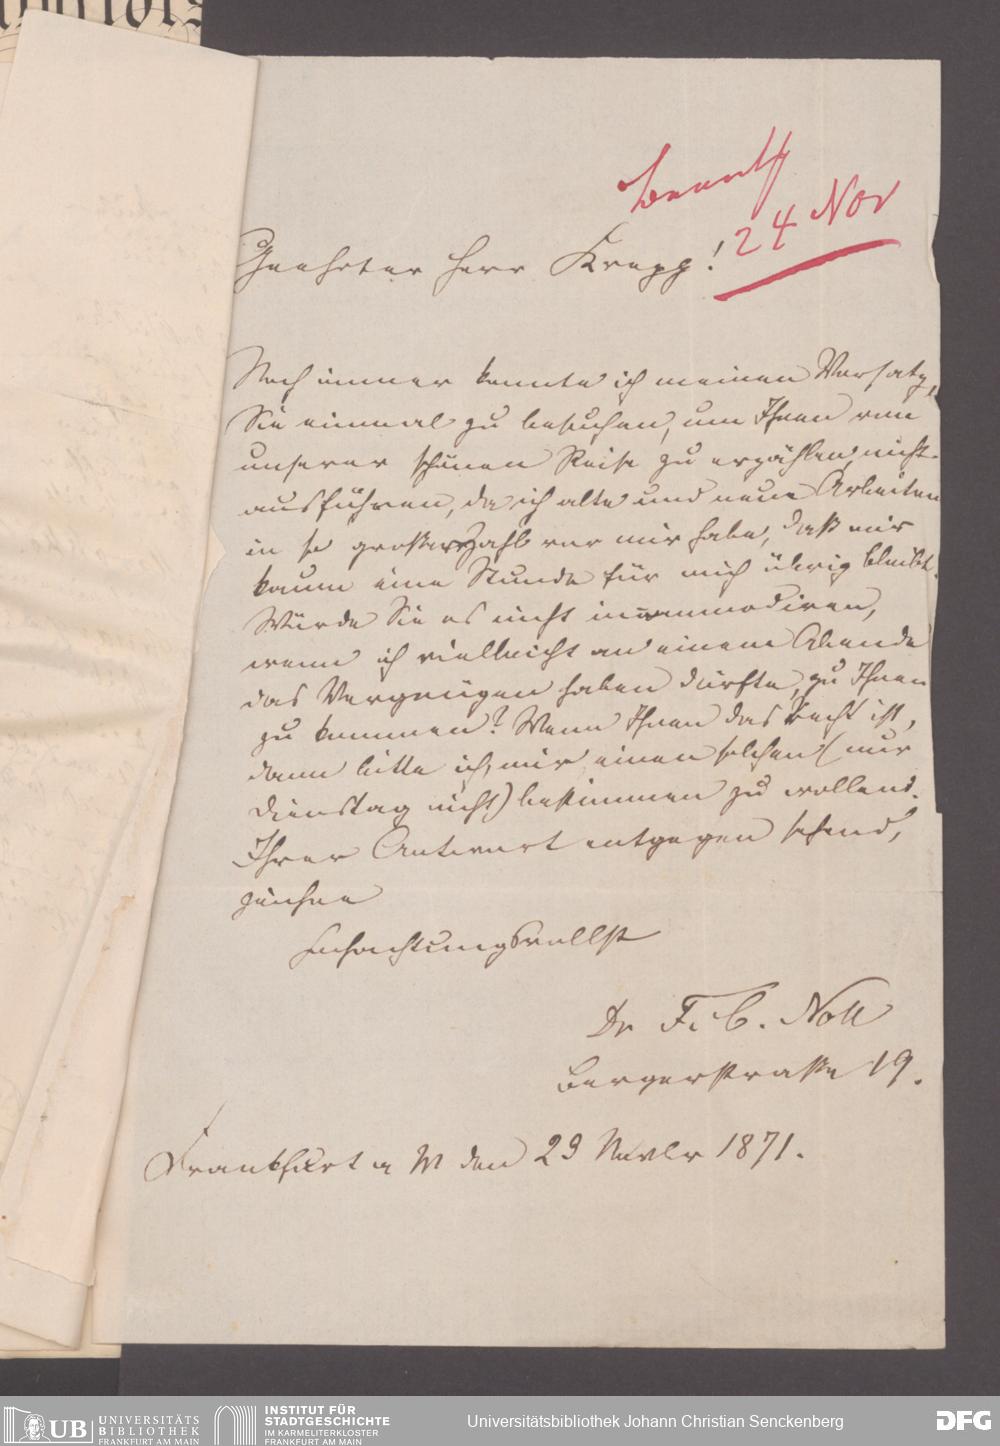 beantw
24 Nov
Geehrter Herr Krupp!
Noch immer konnte ich meinen Vorsatz,
Sie einmal zu besuchen, um Ihnen von
unserer schönen Reise zu erzählen, nicht
ausführen, da ich alte und neue Arbeiten
in so großer Zahl vor mir habe, daß mir
kaum eine Stunde für mich übrig bleibt.
Würde Sie es nicht incommodiren,
wenn ich vielleicht an einem Abende
das Vergnügen haben dürfte, zu Ihnen
zu kommen? Wenn Ihnen das recht ist,
dann bitte ich, mir einen solchen (nur
Dienstag nicht) bestimmen zu wollen.
Ihrer Antwort entgegen sehend,
zeichne
hochachtungsvollst
Dr F. C. Noll
Bergerstraße 19.
Frankfurt a M den 23 Novbr 1871.
UB UNIVERSITÄTS
BIBLIOTHEK
FRANKFURT AM MAIN
INSTITUT FÜR
STADTGESCHICHTE
IM KARMELITERKLOSTER
FRANKFURT AM MAIN
Universitätsbibliothek Johann Christian Senckenberg
DFG